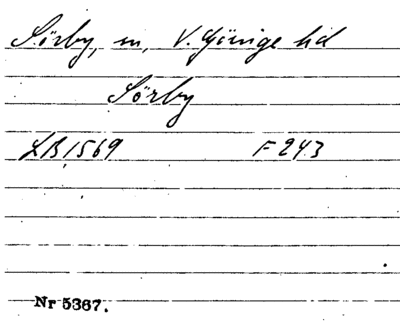 Sörby, m, V. Göinge hd
Sörby
LB 1569 F 243
Nr 5367.